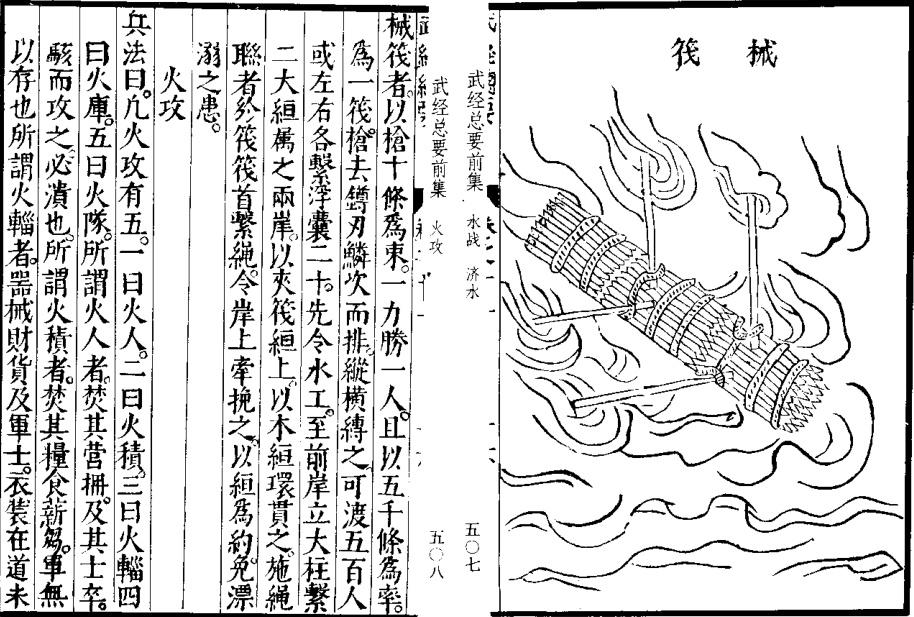 械筏
武经总要前集 水战 济水
五〇七
武经总要前集 火攻
五〇八
械筏者。以槍十條為束。一力勝一人。且以五千條為率。
為一筏。槍去鐏刃鱗次而排。縱橫縛之。可渡五百人
或左右各繫浮囊二十。先令水工。至前岸立大柱繫
二大絙屬之兩岸。以夾筏絙上。以木絙環貫之。施繩
聯者於筏筏首繫繩。令岸上牽挽之。以絙為約。免漂
溺之患。
火攻
兵法曰。凡火攻有五。一曰火人。二曰火積。三曰火輜四
曰火庫。五曰火隊。所謂火人者。焚其營柵。及其士卒。
駭而攻之。必潰也。所謂火積者。焚其糧食薪芻。軍無
以存也所謂火輜者。器械財貨及軍士。衣裝在道未